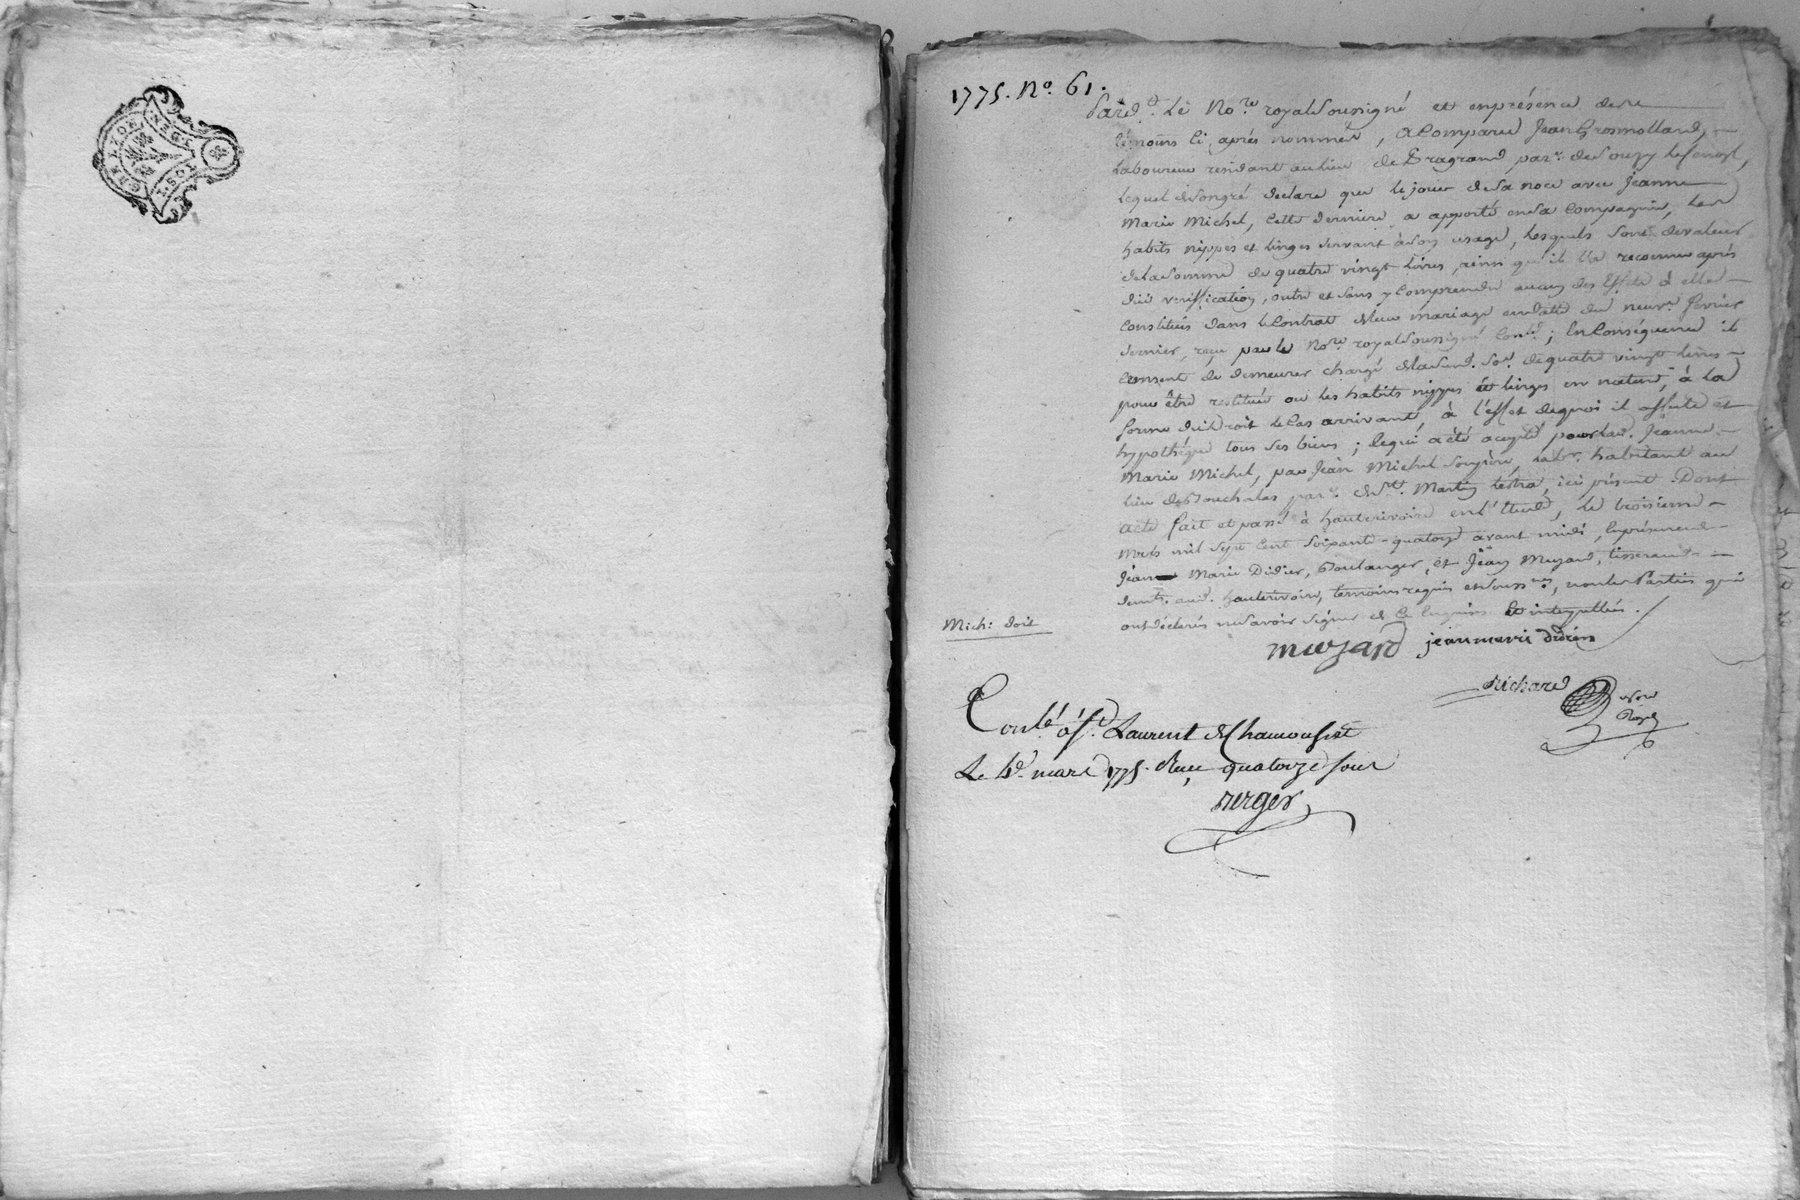 GEN DE
1775. No. 61.
Pard.t Le No.re royal Soussigné et enprésence des
témoins Ci, après nommés, a Comparu Jean Grosmolland,
Laboureur residant au lieu de Bragrand par.e de Souzy
Lequel de Songré declare que le jour de Sa noce avec Jeanne
Marie Michel, Cette derniere a apporté en Sa Compagnie, des
habits nippes et linges Servant à Son usage, lesquels Sont de valeur
de la Somme de quatre vingt livres, ainsi qu'il l'a reconnu après
düe verification, outre et Sans y Comprendre aucun des Effets à elle
Constitués dans le Contrat de leur mariage en datte du neuf.e fevrier
dernier, reçu par le No.re royal Soussigné Con.lé; En Conséquence il
Consent de demeurer chargé de la Sud. So.e de quatre vingt livres
pour être restituée ou les habits nippes et linges en nature, à la
forme du Droit le Cas arrivant, à l'effet dequoi il affecte et
hypothéque tous Ses biens; Ce qui a été accepté pour lad. Jeanne
Marie Michel, par Jean Michel Son pere, labr. habitant au
lieu de Bouchalas par.e de St. Martin lestra, ici present. Dont
acte fait et passé à hauterivoire en l'Etude, le troisieme
Mars mil Sept Cent Soixante-quatorze avant midi, En présence de
Jean Marie Didier, Boulanger, et Jean Muzard, tisserand
dem.ts aud. hauterivoire, temoins requis et Souss.nés, non les Parties qui
ont déclarés ne Savoir Signer de Ce Enquises et interpellées.
Mich: doit
muzard jeanmarie didier
Richard
No.re Royal
Con.lé à S.t Laurent de Chamousset
Le mars 1775. Reçu quatorze Sous
Berger